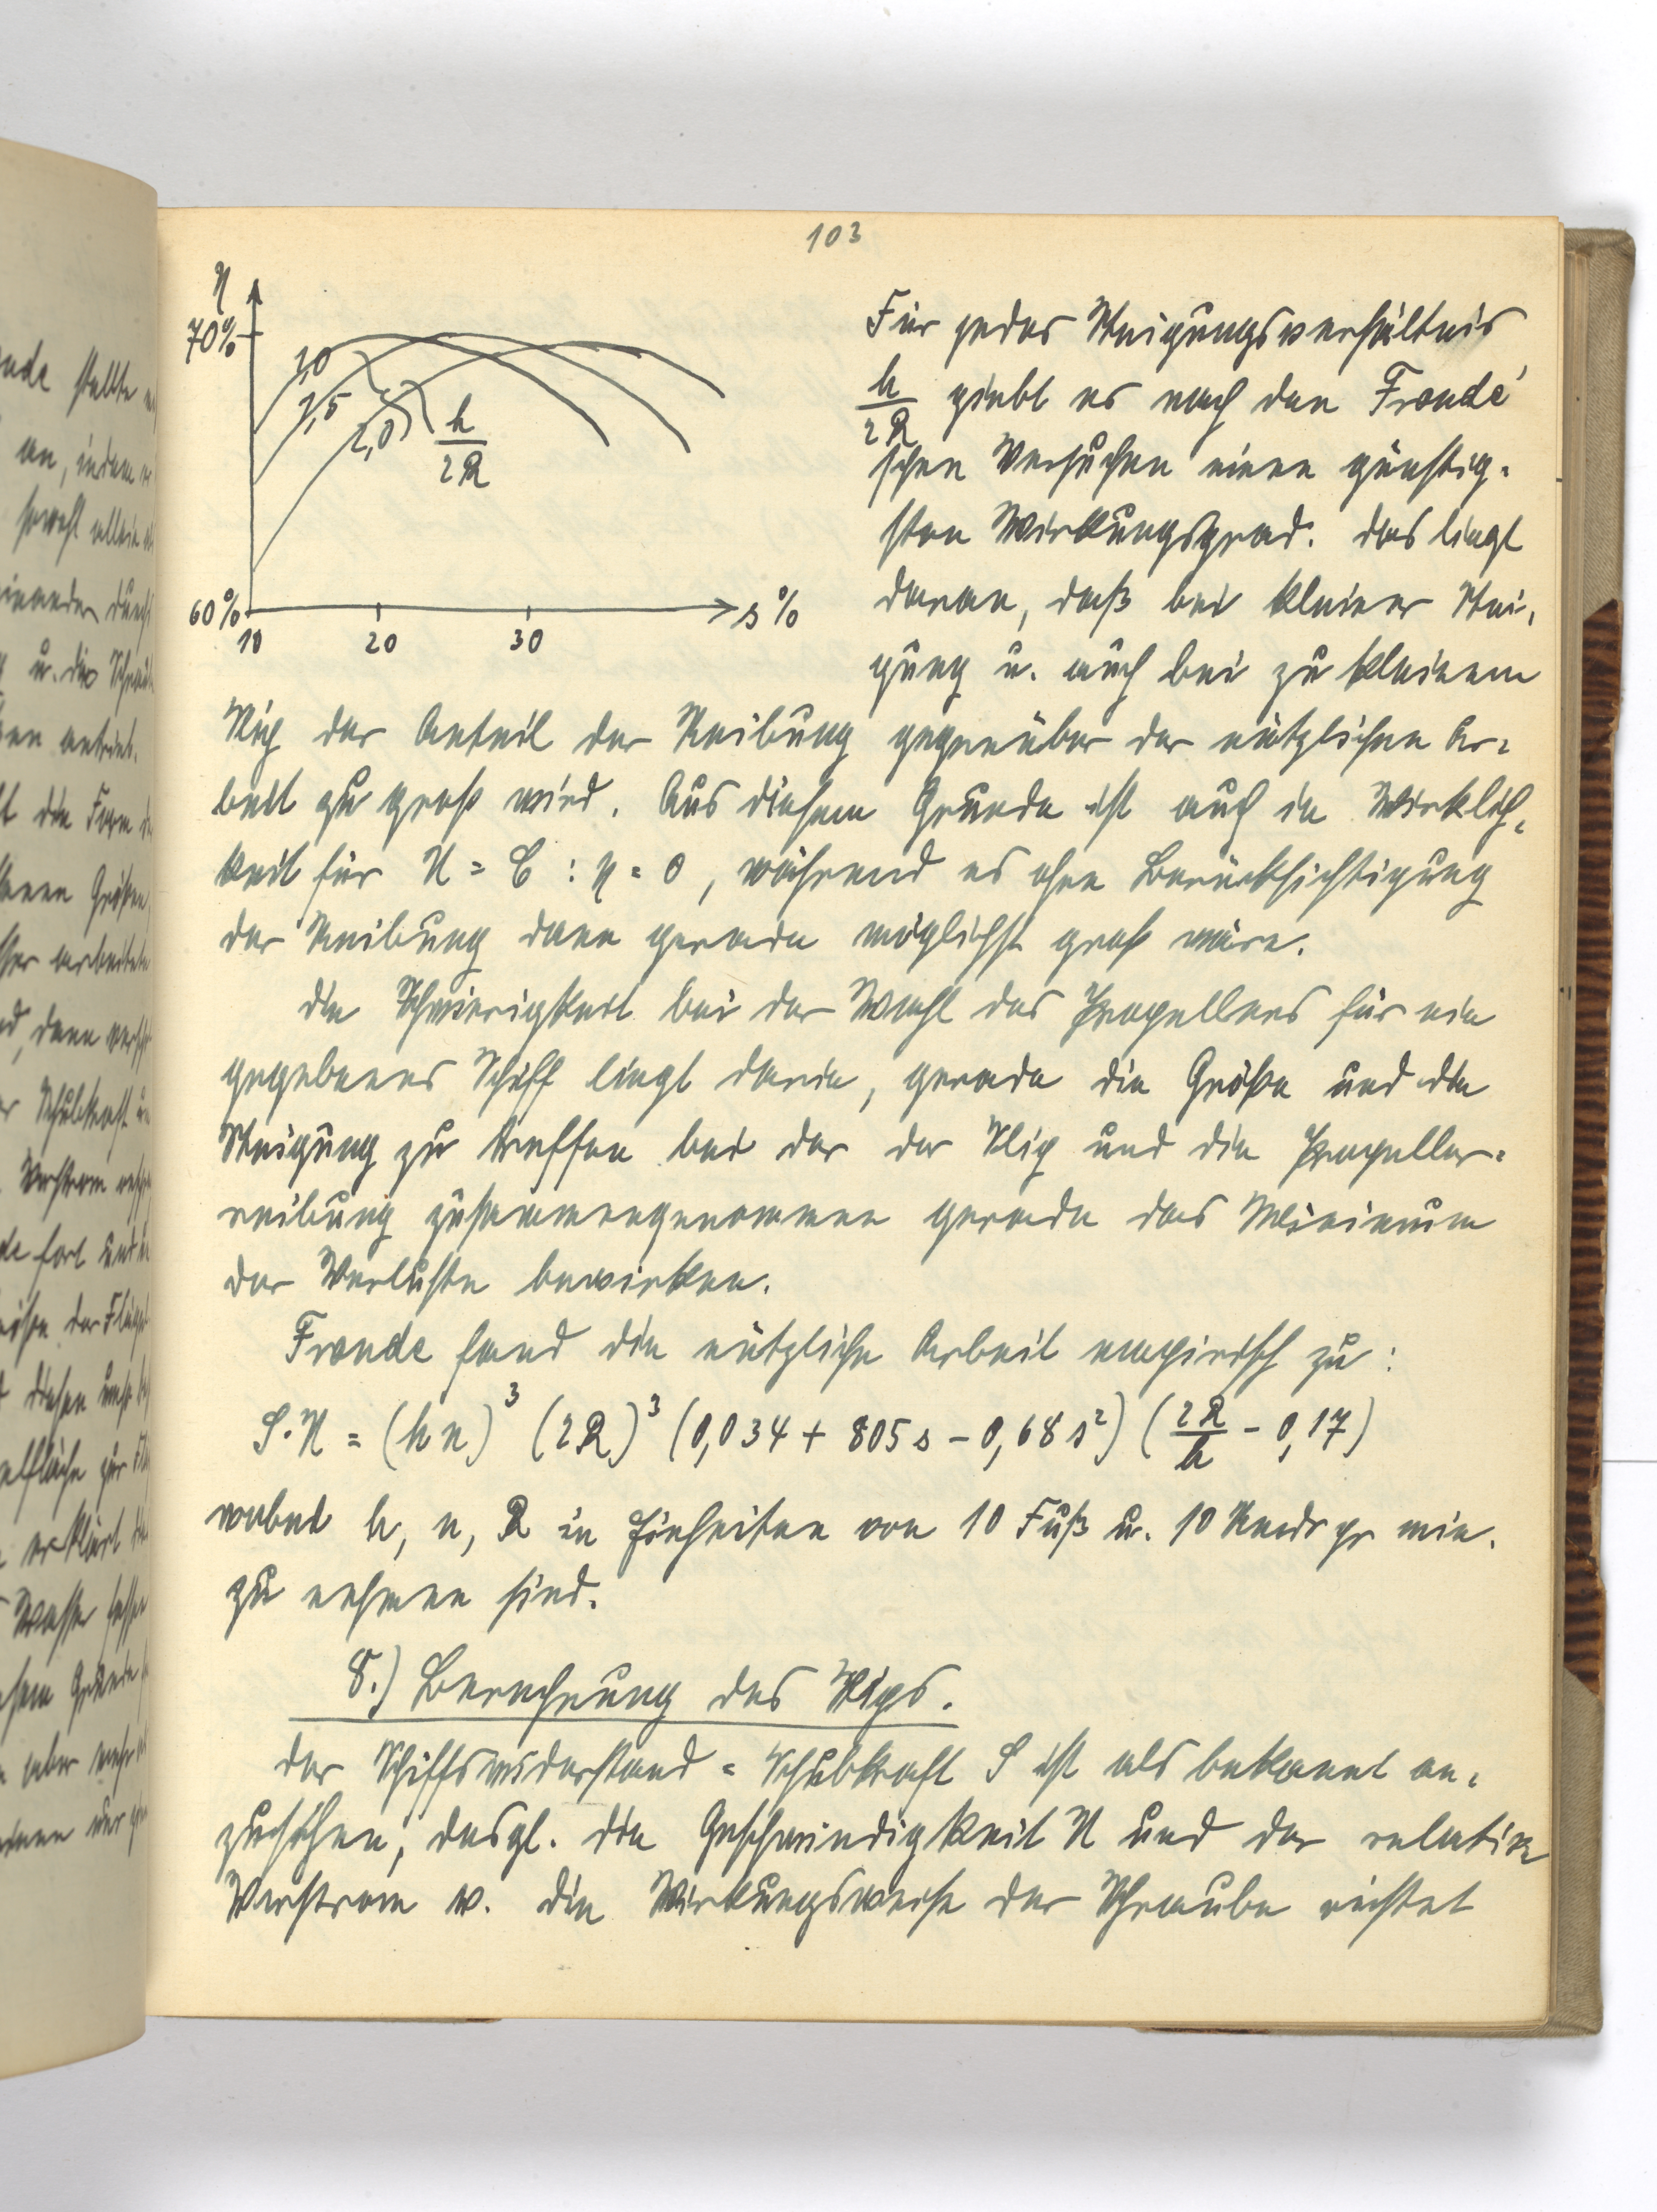 103
η
70%
1,0
1,5
2,0
h/2R
60%
10 20 30 s%
Für jedes Steigungsverhältnis
h/2R giebt es nach den Froude'
schen Versuchen einen günstig-
sten Wirkungsgrad. Das liegt
daran, daß bei kleiner Stei-
gung u. auch bei zu kleinem
Slip der Anteil der Reibung gegenüber der nützlichen Ar-
beit zu groß wird. Aus diesem Grunde ist auch in Wirklich-
keit für U = C : η = 0, während es ohne Berücksichtigung
der Reibung dann gerade möglichst groß wäre.
Die Schwierigkeit bei der Wahl des Propellers für ein
gegebenes Schiff liegt darin, gerade die Größe und die
Steigung zu treffen bei der der Slip und die Propeller-
reibung zusammengenommen gerade das Minimum
der Verluste bewirken.
Froude fand die nützliche Arbeit empirisch zu:
S·U = (hn)³ (2R)³ (0,034 + 805 s − 0,68 s²) (2R/h − 0,17)
wobei h, n, R in Einheiten von 10 Fuß u. 10 Umdr pr min.
zu nehmen sind.
8.) Berechnung des Slips.
Der Schiffswiderstand = Schubkraft S ist als bekannt an-
zusehen, desgl. die Geschwindigkeit U und der relative
Vorstrom w. Die Wirkungsweise der Schraube richtet